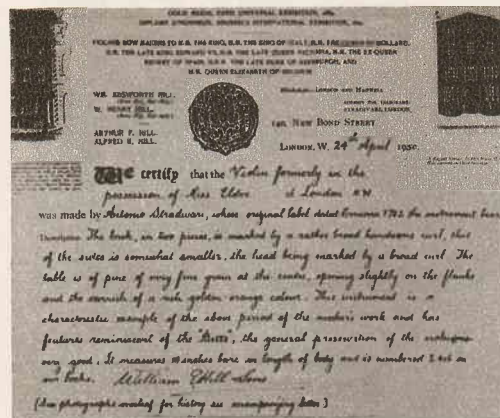 GOLD MEDAL, PARIS UNIVERSAL EXHIBITION,
DIPLOMA D'HONNEUR, BRUSSELS INTERNATIONAL EXHIBITION,
VIOLIN & BOW MAKERS TO H.M. THE KING, H.M. THE KING OF ITALY, H.M. THE QUEEN OF HOLLAND,
H.M. THE LATE KING EDWARD VII, H.M. THE LATE QUEEN VICTORIA, H.M. THE EX QUEEN
REGENT OF SPAIN, H.R.H. THE LATE DUKE OF EDINBURGH, AND
H.M. QUEEN ELIZABETH OF BELGIUM
WM. EBSWORTH HILL.
LONDON AND HANWELL
W. HENRY HILL.
STRADIVARI, LONDON.
ARTHUR F. HILL.
ALFRED E. HILL.
140, NEW BOND STREET
LONDON, W. 24th April 1930.
We certify that the Violin formerly in the
possession of Miss London N.W.
was made by Antonio Stradivari, whose original label dated Cremona the instrument bears
The back, in two pieces, is marked by a rather broad handsome curl, that
of the sides is somewhat smaller, the head being marked by a broad curl. The
table is of pine of very fine grain at the centre, opening slightly on the flanks
and the varnish of a rich golden orange colour. This instrument is a
characteristic example of the above period of the maker's work and has
features reminiscent of the "Betts", the general preservation of the
very good. It measures inches bare in length of body and is numbered on
our books. William E. Hill & Sons
[See photographs overleaf for history see accompanying letter]